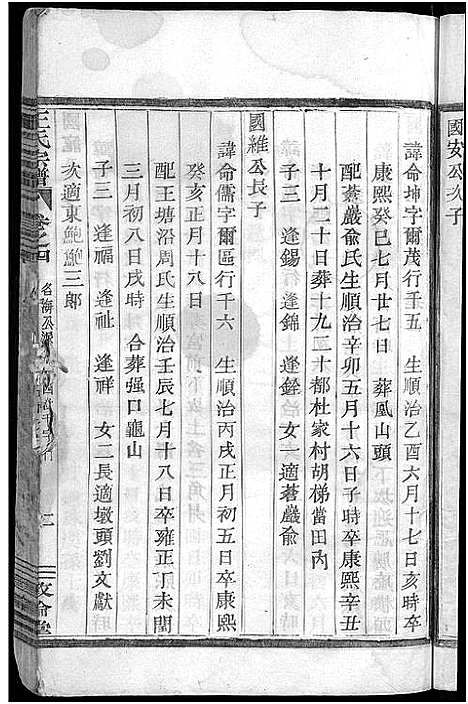 國安公次子
諱命坤字爾茂行千五 生順治乙酉六月十七日亥時卒
康熙癸巳七月廿七日 葬鳳山頭
配蒼巖俞氏生順治辛卯五月十六日子時卒康熙辛丑
十月二十日葬十九二十都杜家村胡梯當田內
子三 逢錫 逢錦 逢銓 女一適蒼巖俞
國維公長子
諱命儒字爾區行千六 生順治丙戌正月初五日卒康熙
癸亥正月十八日
配王塘沿周氏生順治壬辰七月十八日卒雍正丁未閏
三月初八日戌時 合葬强口龜山
子三 逢福 逢祉 逢祥 女二長適墩頭劉文獻
次適東鮑鮑三郎
王氏宗譜 卷之四